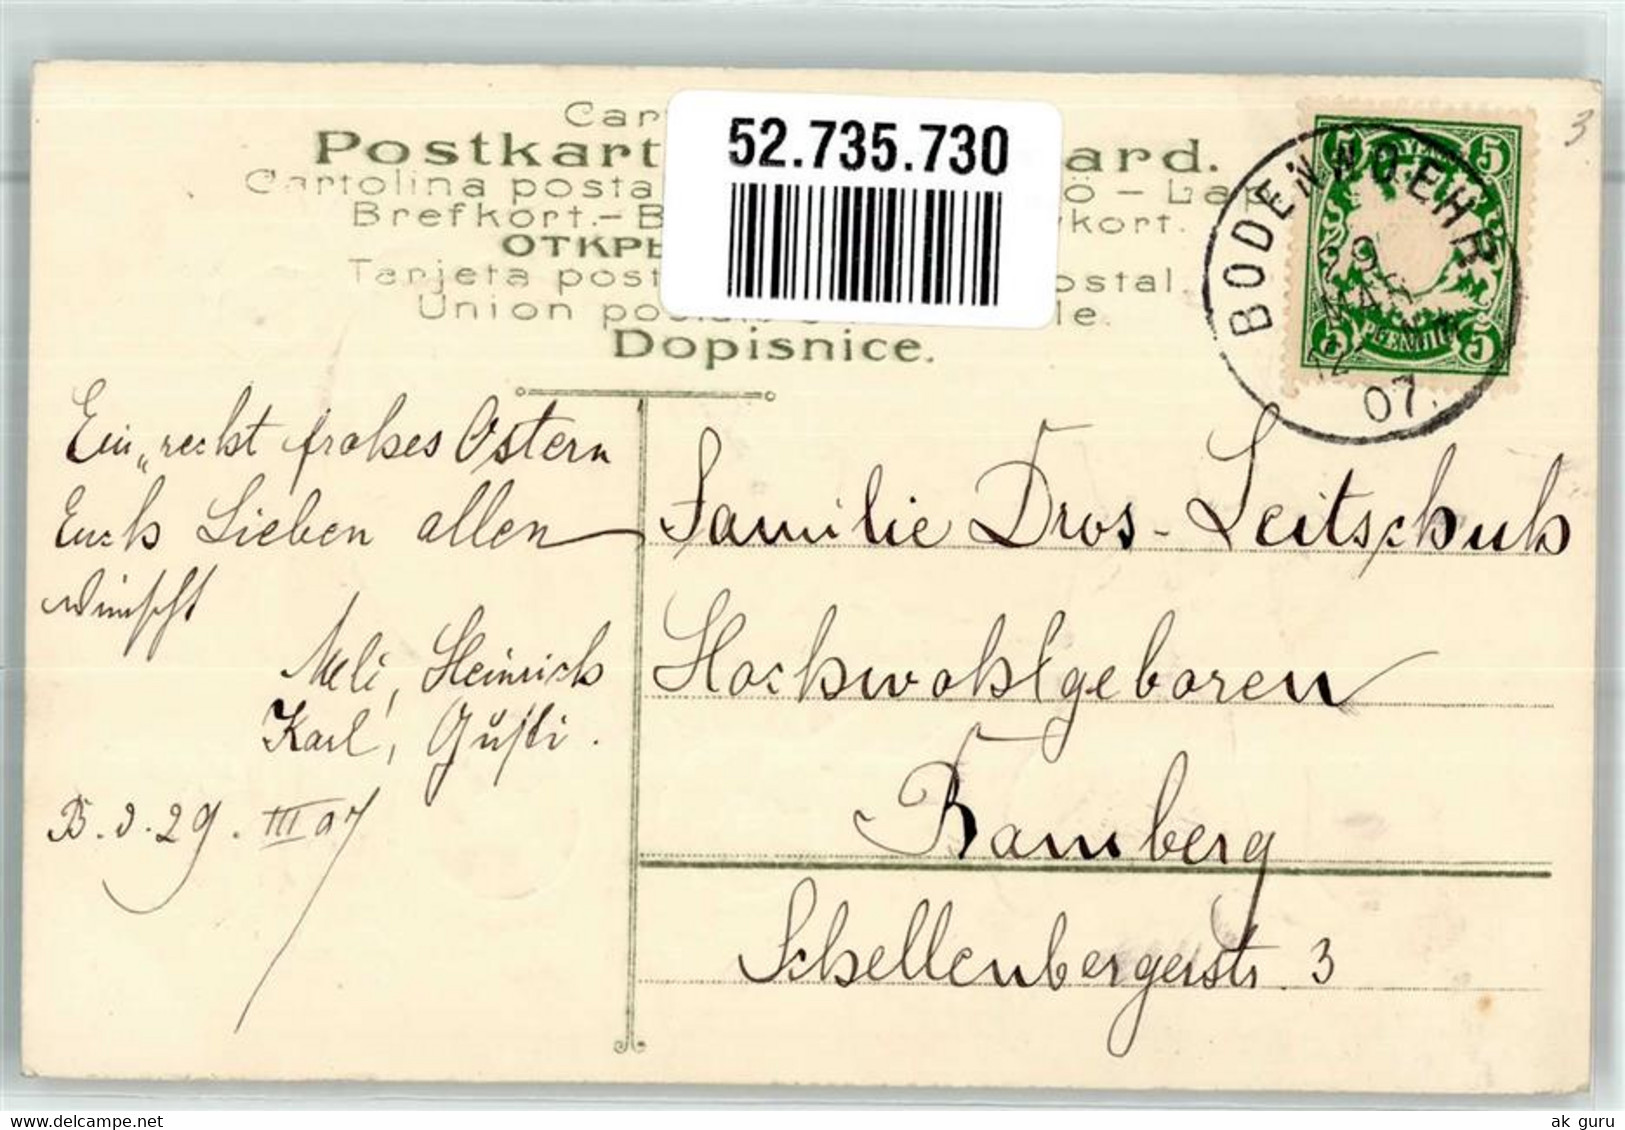 Car
52.735.730
Postkart ard.
Cartolina posta ö - Lap
Brefkort.- B vkort.
ОТКРЫ
Tarjeta post ostal.
Union po le.
Dopisnice.
BODENWOEHR
29
MAR
12
07.
5 5
5 PFENNIG 5
3
Ein „recht frohes Ostern
Euch Lieben allen
wünscht
Meli, Heinrich
Karl, Gusti.
B. d. 29. III 07
Familie Dros-Leitschuh
Hochwohlgeboren
Bamberg
Schellenbergerstr. 3
ak guru